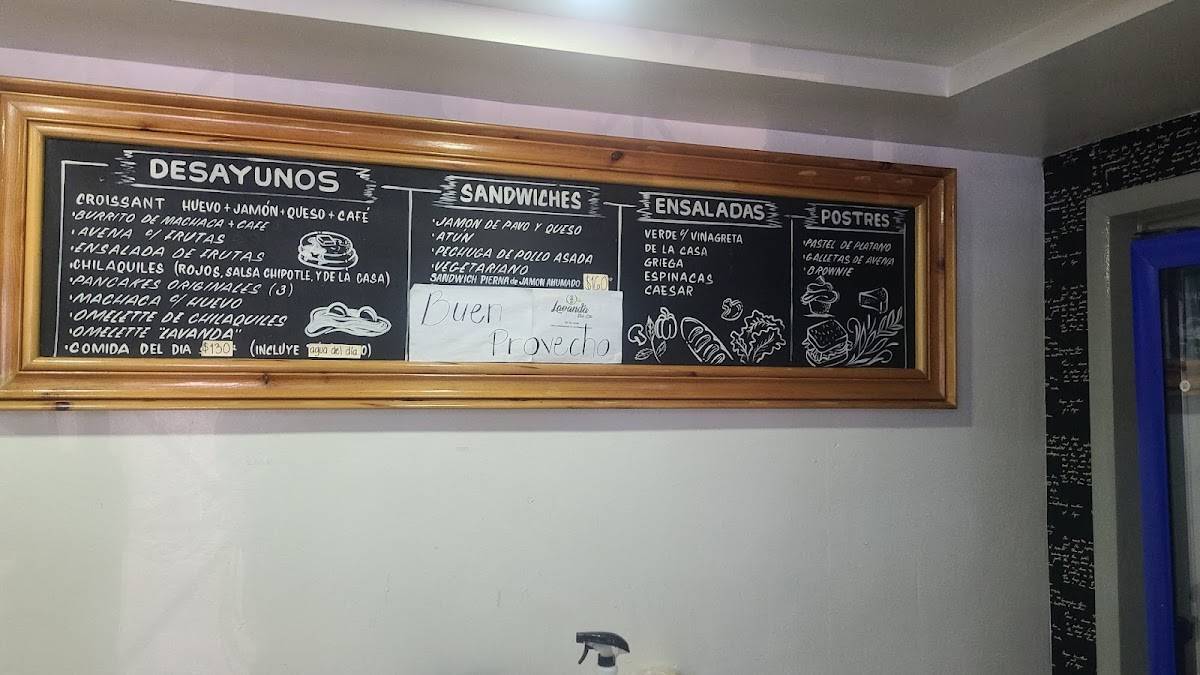 DESAYUNOS
CROISSANT HUEVO + JAMÓN + QUESO + CAFÉ
·BURRITO DE MACHACA + CAFE
·AVENA C/ FRUTAS
·ENSALADA DE FRUTAS
·CHILAQUILES (ROJOS, SALSA CHIPOTLE, Y DE LA CASA)
·PANCAKES ORIGINALES (3)
·MACHACA C/ HUEVO
·OMELETTE DE CHILAQUILES
·OMELETTE "LAVANDA"
·COMIDA DEL DIA $130 (INCLUYE agua del día)
SANDWICHES
·JAMON DE PAVO Y QUESO
·ATÚN
·PECHUGA DE POLLO ASADA
·VEGETARIANO
SANDWICH PIERNA de JAMON AHUMADO $160
Buen
Provecho
Lavanda
ENSALADAS
VERDE C/ VINAGRETA
DE LA CASA
GRIEGA
ESPINACAS
CAESAR
POSTRES
·PASTEL DE PLATANO
·GALLETAS DE AVENA
·BROWNIE